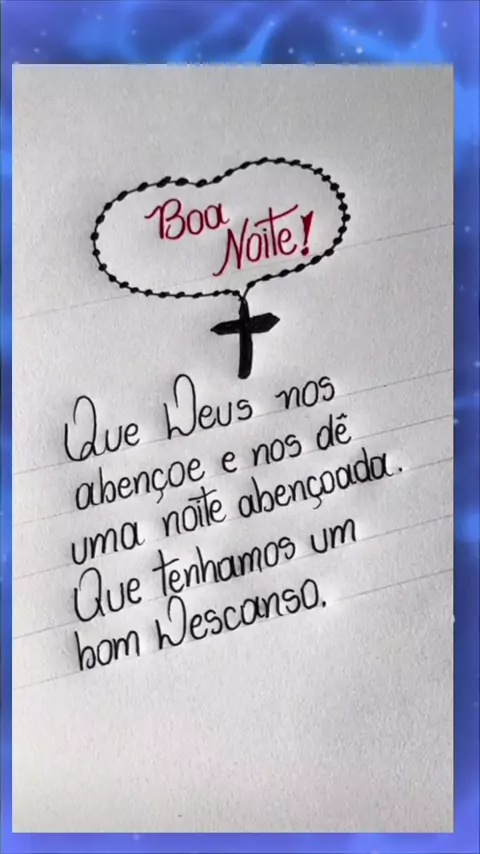 Boa
Noite!
Que Deus nos
abençoe e nos dê
uma noite abençoada.
Que tenhamos um
bom Descanso.